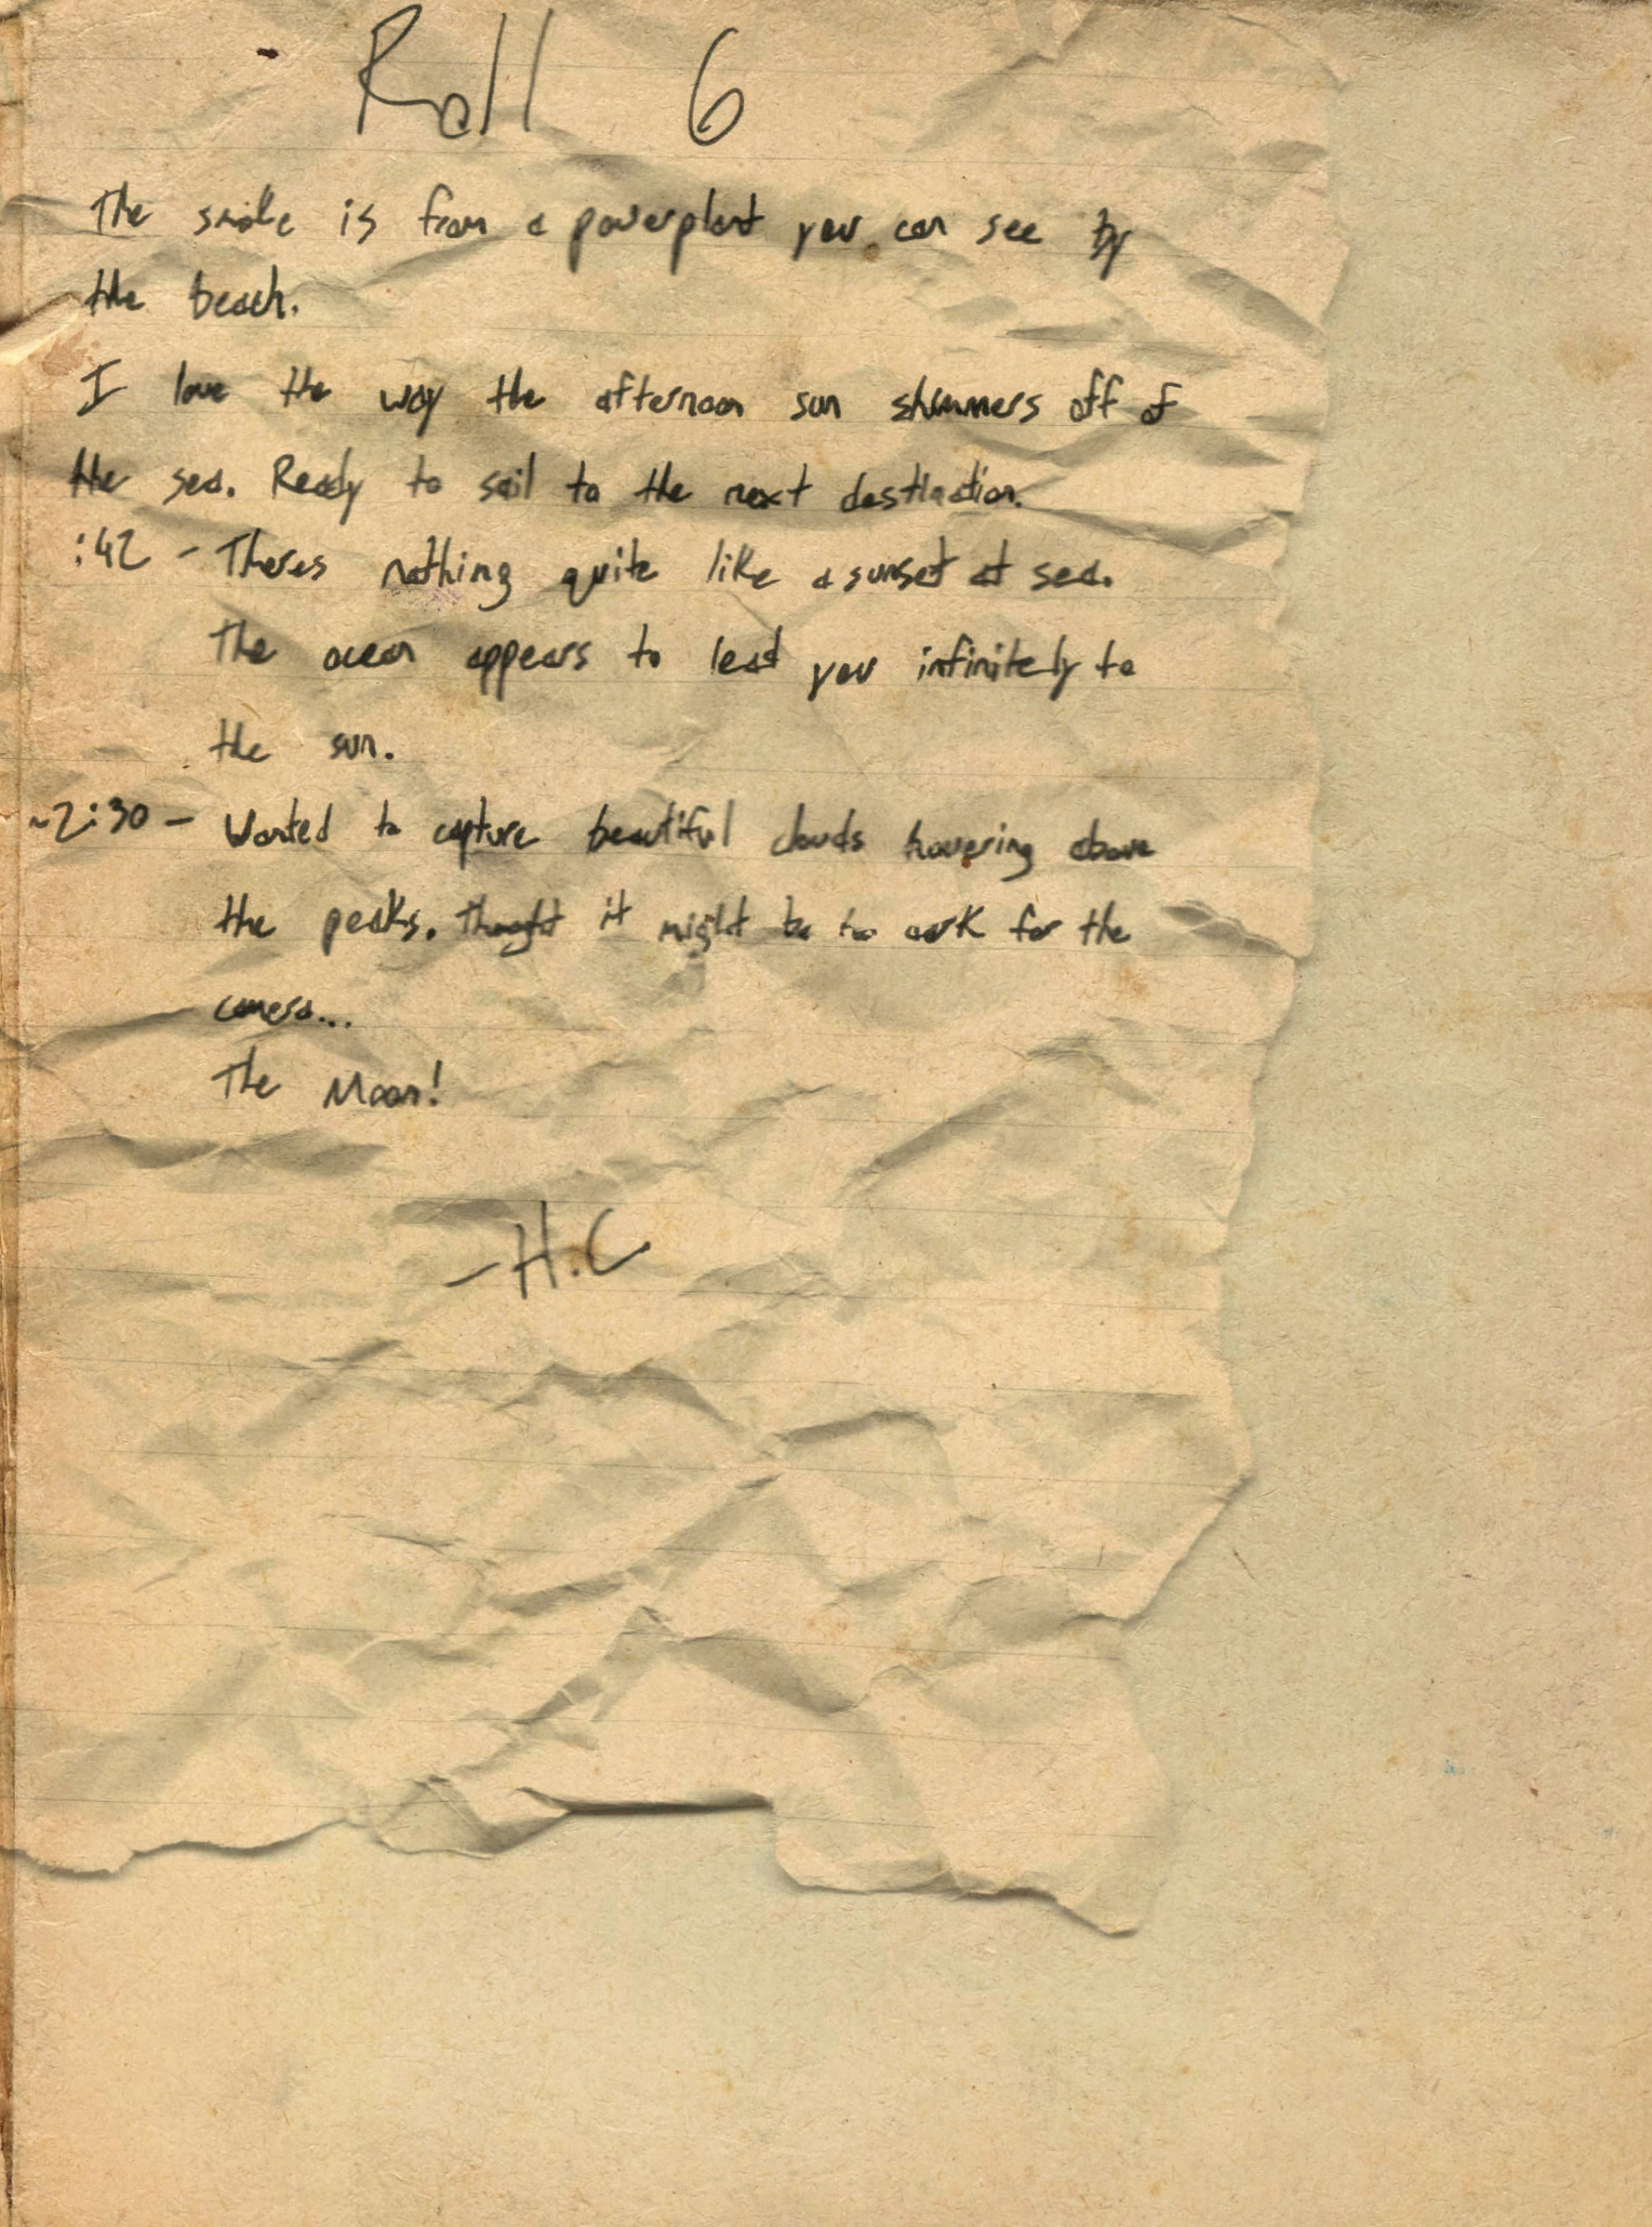 Roll 6
The smoke is from a powerplant you can see by
the beach.
I love the way the afternoon sun shimmers off of
the sea. Ready to sail to the next destination.
:42 - Theres nothing quite like a sunset at sea.
The ocean appears to lead you infinitely to
the sun.
~2:30 - Wanted to capture beautiful clouds hovering above
the peaks. Thought it might be to dark for the
camera...
The Moon!
-H.C